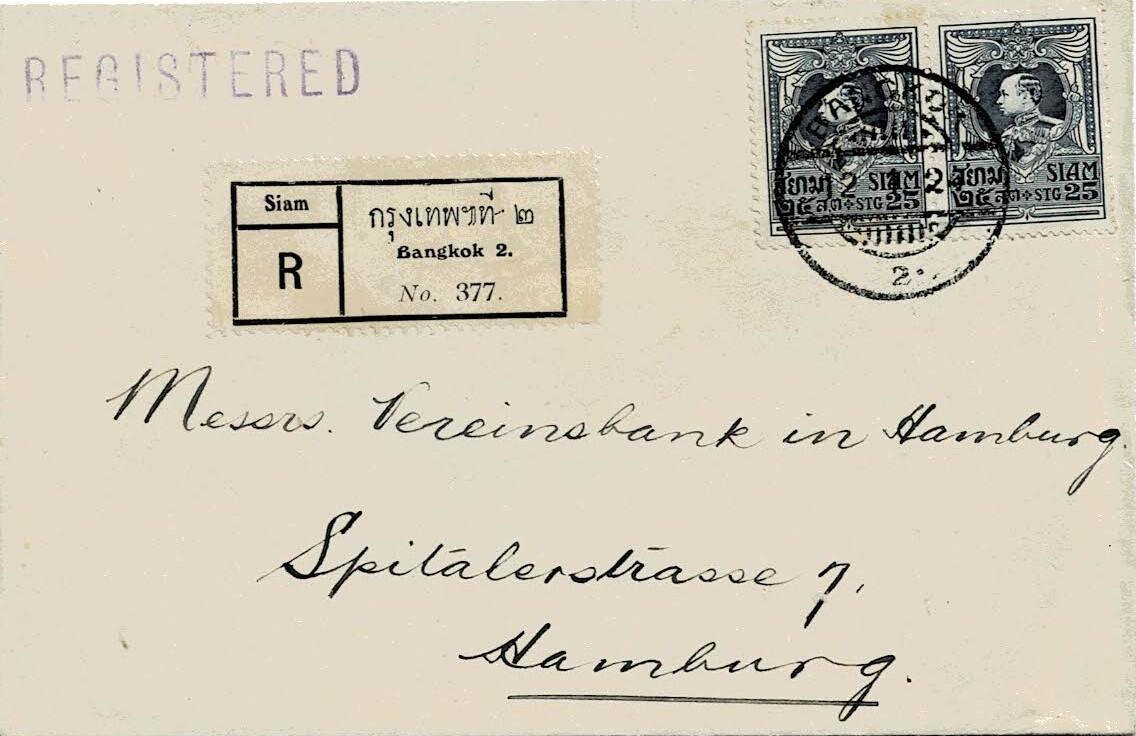 REGISTERED
สยาม SIAM
๒๕ สต STG 25
สยาม SIAM
๒๕ สต STG 25
BANGKOK
2
2
Siam
R
กรุงเทพฯที่ ๒
Bangkok 2.
No. 377.
Messrs. Vereinsbank in Hamburg.
Spitalerstrasse 7.
Hamburg.